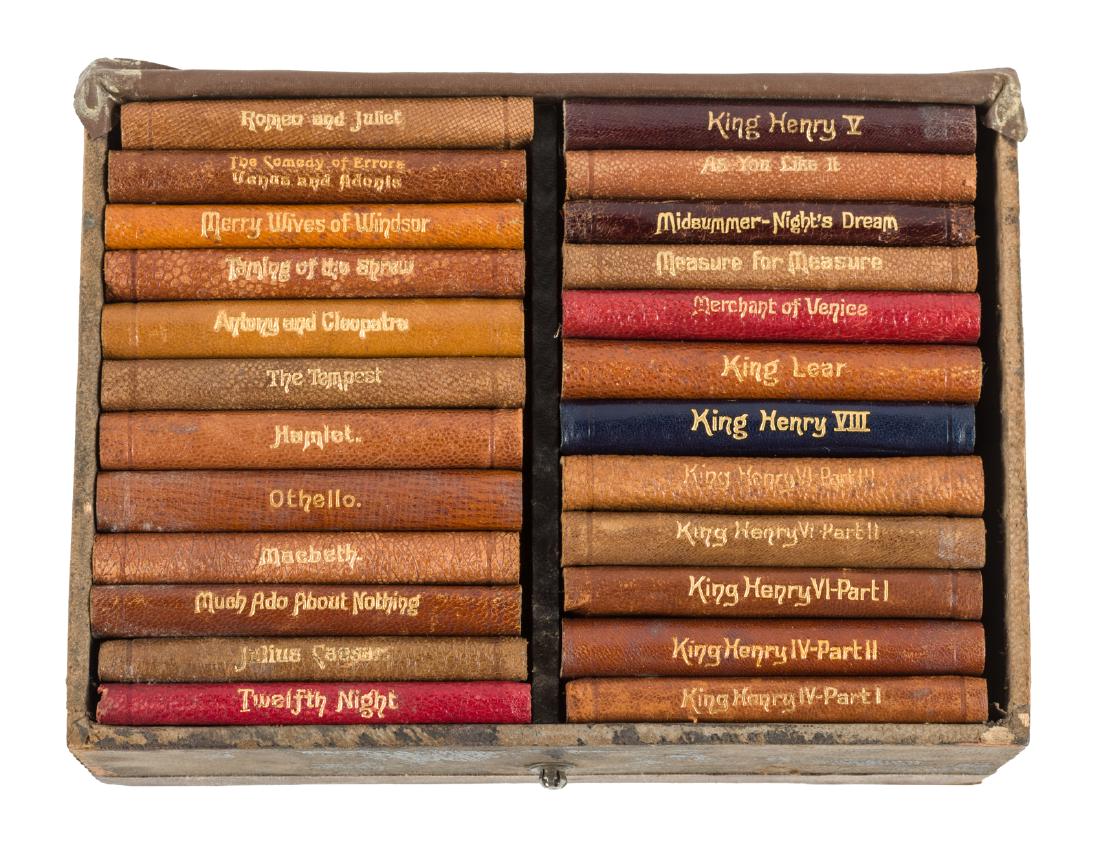 Romeo and Juliet
The Comedy of Errors
Venus and Adonis
Merry Wives of Windsor
Taming of the Shrew
Antony and Cleopatra
The Tempest
Hamlet.
Othello.
Macbeth.
Much Ado About Nothing
Julius Caesar
Twelfth Night
King Henry V
As You Like It
Midsummer-Night's Dream
Measure for Measure
Merchant of Venice
King Lear
King Henry VIII
King Henry VI-Part III
King Henry VI-Part II
King Henry VI-Part I
King Henry IV-Part II
King Henry IV-Part I